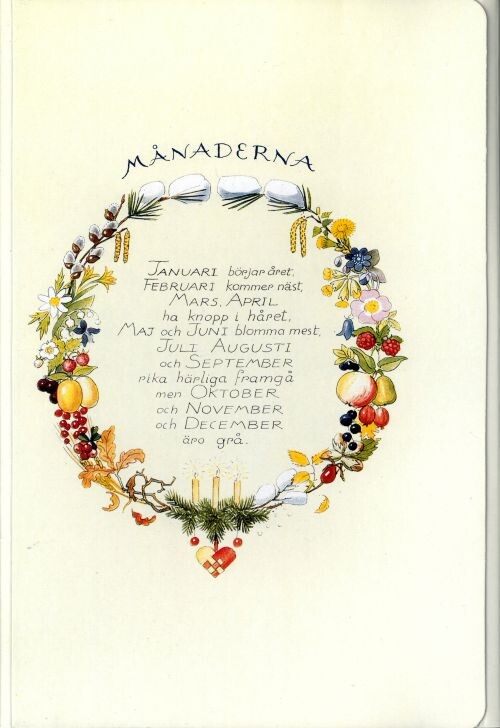 MÅNADERNA
JANUARI börjar året,
FEBRUARI kommer näst,
MARS, APRIL
ha knopp i håret,
MAJ och JUNI blomma mest,
JULI AUGUSTI
och SEPTEMBER
rika härliga framgå
men OKTOBER
och NOVEMBER
och DECEMBER
äro grå.